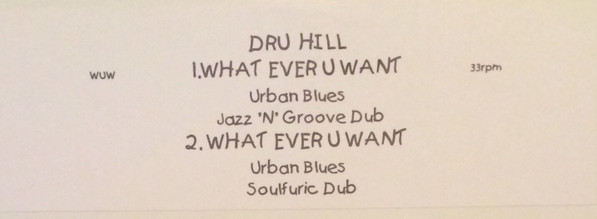 DRU HILL
WUW 1.WHAT EVER U WANT 33rpm
Urban Blues
Jazz "N" Groove Dub
2. WHAT EVER U WANT
Urban Blues
Soulfuric Dub